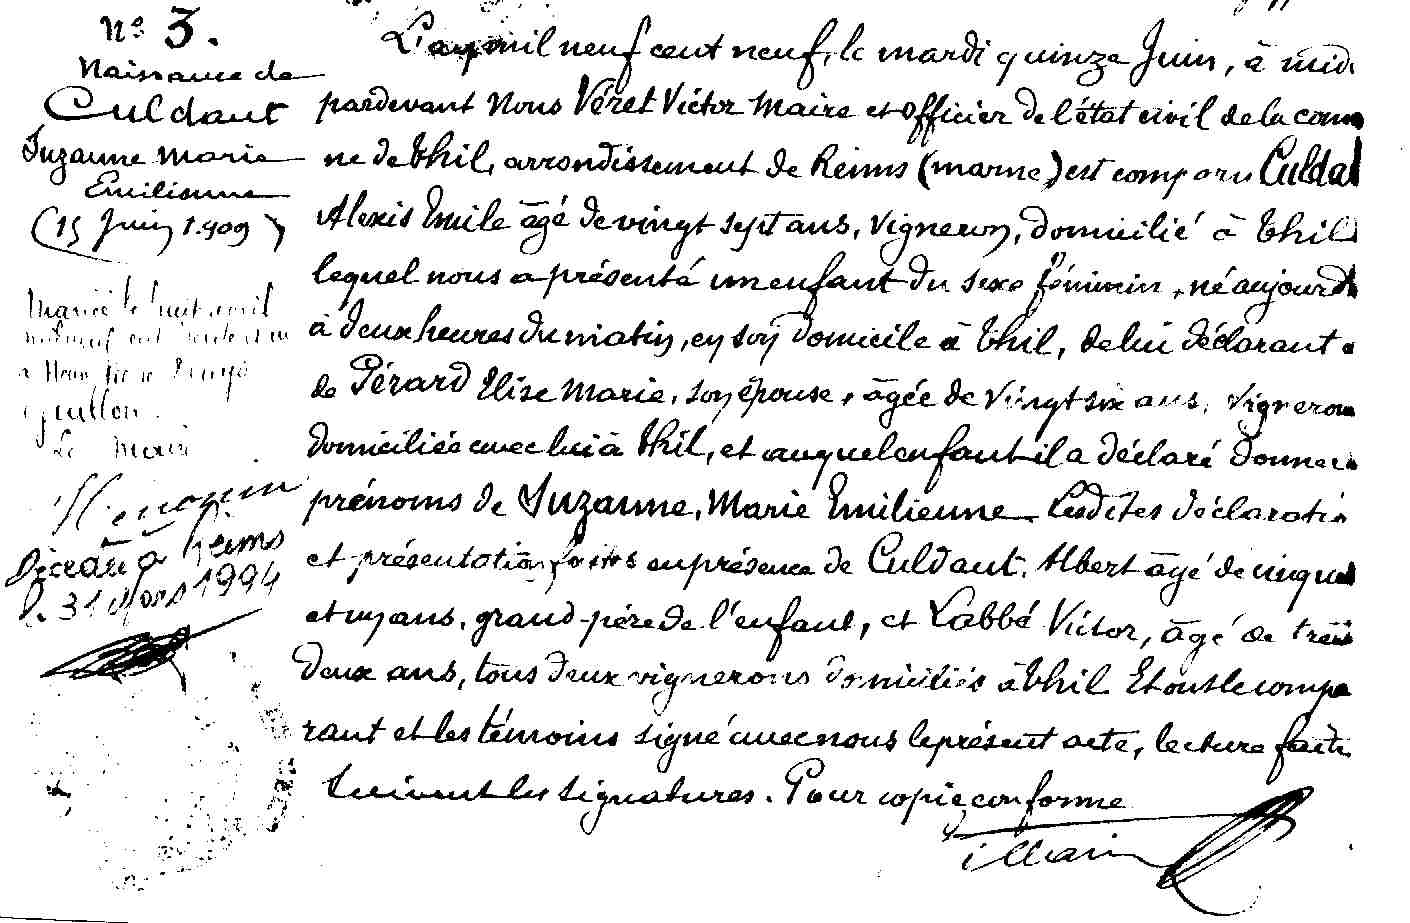 N° 3.
Naissance de
Culdaut
Suzanne Marie
Emilienne
(15 Juin 1909)
Mariée le huit avril
mil neuf cent trente et un
à
Guillou.
Le Maire
Décédée à Reims
le 31 Mars 1994
L'an mil neuf cent neuf, le mardi quinze Juin, à midi
pardevant Nous Véret Victor Maire et officier de l'état civil de la com
ne de Thil, arrondissement de Reims (marne) est comparu Culda
Alexis Emile âgé de vingt sept ans, vigneron, domicilié à Thil
lequel nous a présenté un enfant du sexe féminin, né aujourd
à deux heures du matin, en son domicile à Thil, de lui déclarant e
de Pérard Elise Marie, son épouse, âgée de vingt six ans, vigneron
domiciliée avec lui à Thil, et auquel enfant il a déclaré donner
prénoms de Suzanne, Marie Emilienne. Lesdites déclaratio
et présentation faites en présence de Culdaut Albert âgé de cinquan
et un ans, grand-père de l'enfant, et Labbé Victor, âgé de trente
deux ans, tous deux vignerons domiciliés à Thil Et ont le compa
rant et les témoins signé avec nous le présent acte, lecture faite
Suivent les signatures. Pour copie conforme